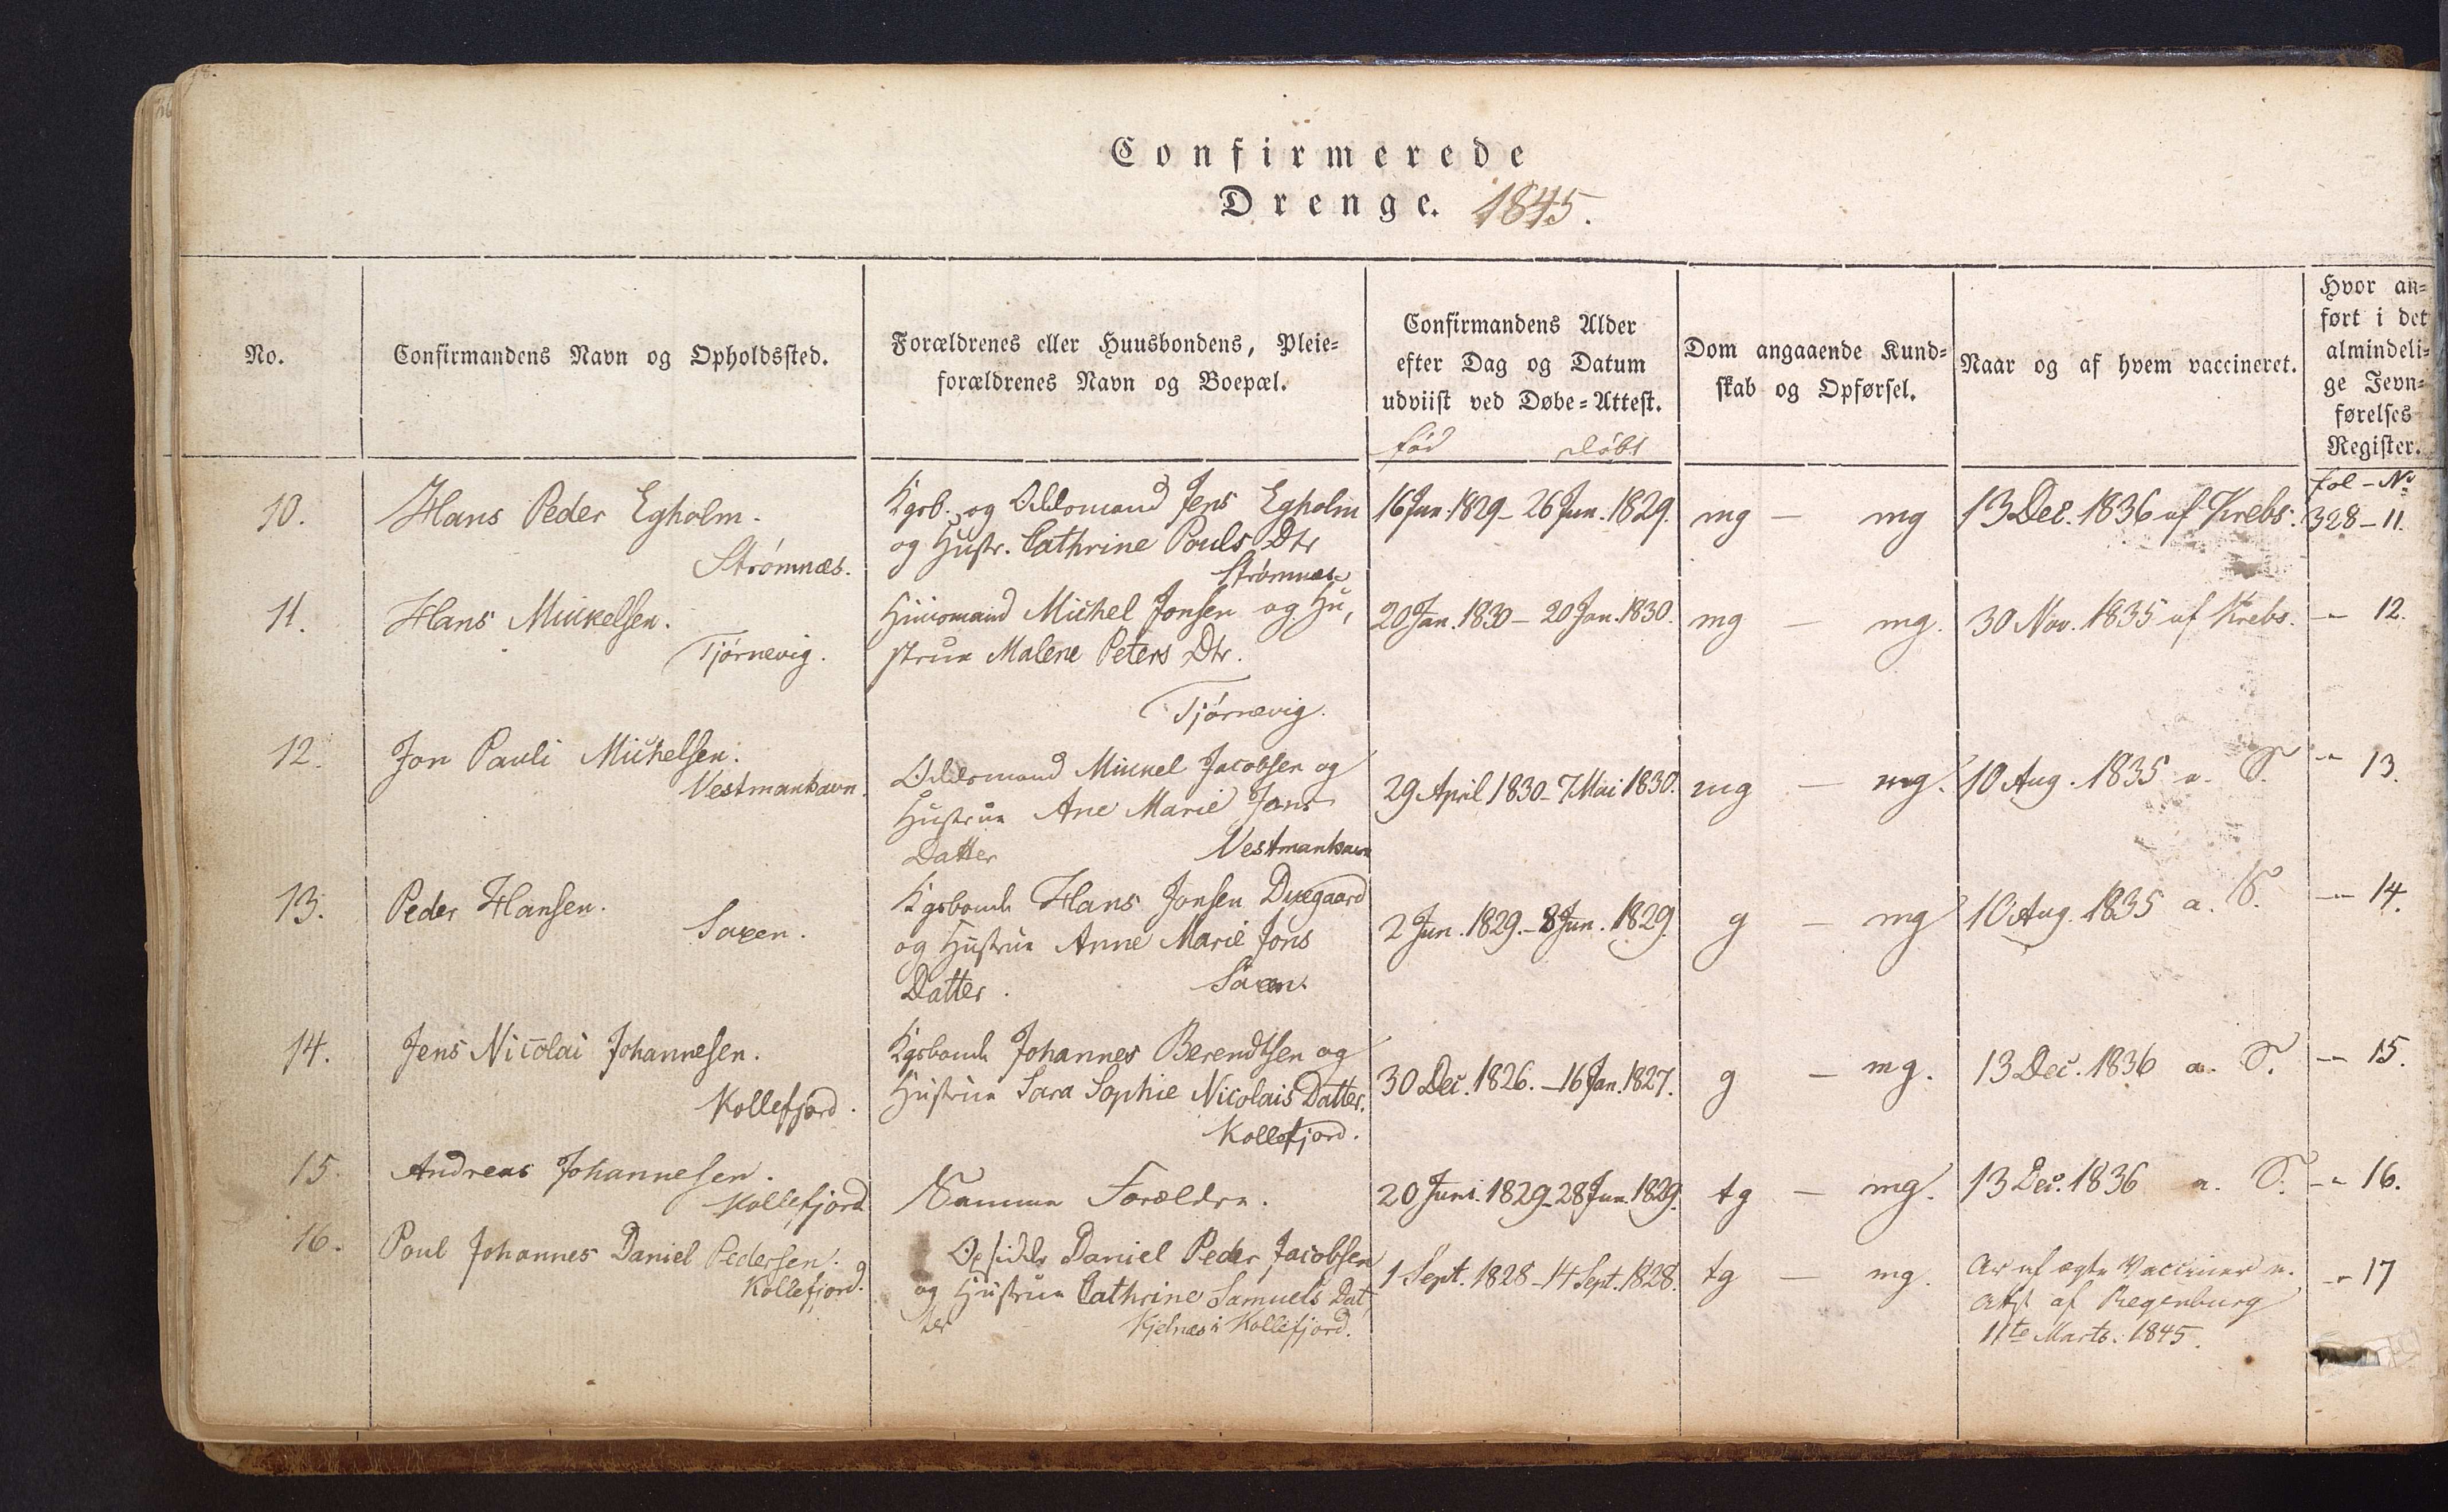 Confirmerede
Drenge. 1845.
No.
Confirmandens Navn og Opholdssted.
Forældrenes eller Huusbondens, Pleie=
forældrenes Navn og Boepæl.
Confirmandens Alder
efter Dag og Datum
udviist ved Døbe=Attest.
fød døbt
Dom angaaende Kund=
skab og Opførsel.
Naar og af hvem vaccineret.
Hvor an=
ført i det
almindeli=
ge Jevn=
førelses
Register.
fol - No
10.
Hans Peder Egholm.
Strømnæs.
Kgsb. og Odelsmand Jens Egholm
og Hustr. Cathrine Pouls Dtr
Strømnæs
16 Jun. 1829 - 26 Jun. 1829.
mg - mg
13 Dec. 1836 af Krebs.
328 - 11.
11.
Hans Mickelsen.
Tjørnevig.
Huusmand Michel Jonsen og Hu,
strue Malene Peters Dtr.
Tjørnevig.
20 Jan. 1830 - 20 Jan. 1830.
mg - mg.
30 Nov. 1835 af Krebs.
-"- 12.
12.
Jon Pauli Michelsen.
Vestmanhavn.
Odelsmand Mickel Jacobsen og
Hustrue Ane Marie Jons
Datter Vestmanhavn
29 April 1830 - 7 Mai 1830.
mg - mg.
10 Aug. 1835 a. S.
-"- 13.
13.
Peder Hansen.
Saxen.
Kgsbonde Hans Jonsen Duegaard
og Hustrue Anne Marie Jons
Datter. Saxen.
2 Jun. 1829. - 8 Jun. 1829.
g - mg
10 Aug. 1835 a. S.
-"- 14.
14.
Jens Nicolai Johannesen.
Kollefjord.
Kgsbonde Johannes Berendtsen og
Hustrue Sara Sophie Nicolais Datter.
Kollefjord.
30 Dec. 1826. - 16 Jan. 1827.
g - mg.
13 Dec. 1836 a. S.
-"- 15.
15.
Andreas Johannesen.
Kollefjord
Samme Forældre.
20 Juni. 1829 - 28 Jun. 1829.
tg - mg.
13 Dec. 1836 a. S.
-"- 16.
16.
Poul Johannes Daniel Pedersen.
Kollefjord.
Opsidder Daniel Peder Jacobsen
og Hustrue Cathrine Samuels Dat,
ter Kjelnæs i Kollefjord.
1 Sept. 1828 - 14 Sept. 1828.
tg - mg.
Ar af ægte Vacciner e.
Att. af Regenburg
11te Marts. 1845.
-"- 17